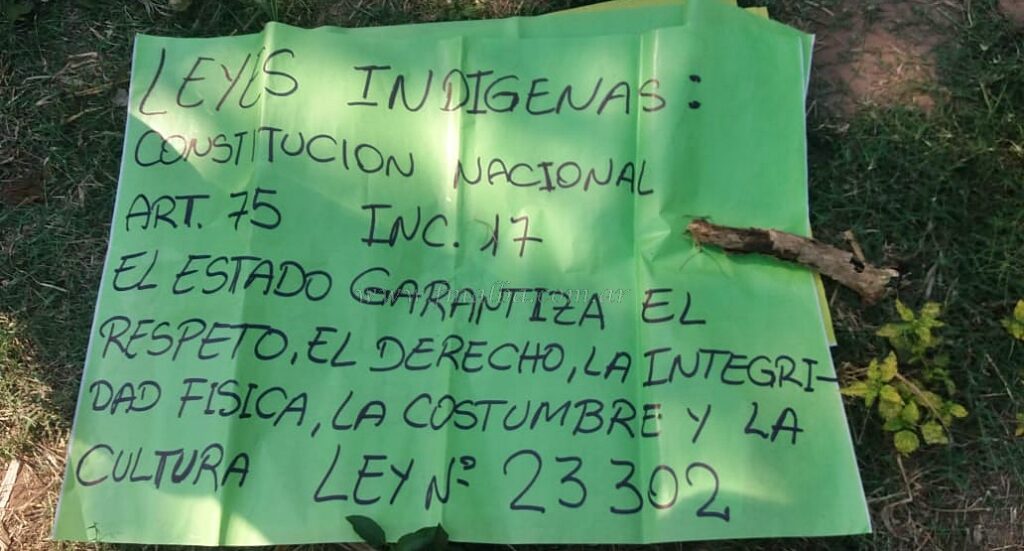 LEYES INDIGENAS:
CONSTITUCION NACIONAL
ART. 75 INC. 17
EL ESTADO GARANTIZA EL
RESPETO, EL DERECHO, LA INTEGRI-
DAD FISICA, LA COSTUMBRE Y LA
CULTURA LEY Nº 23302